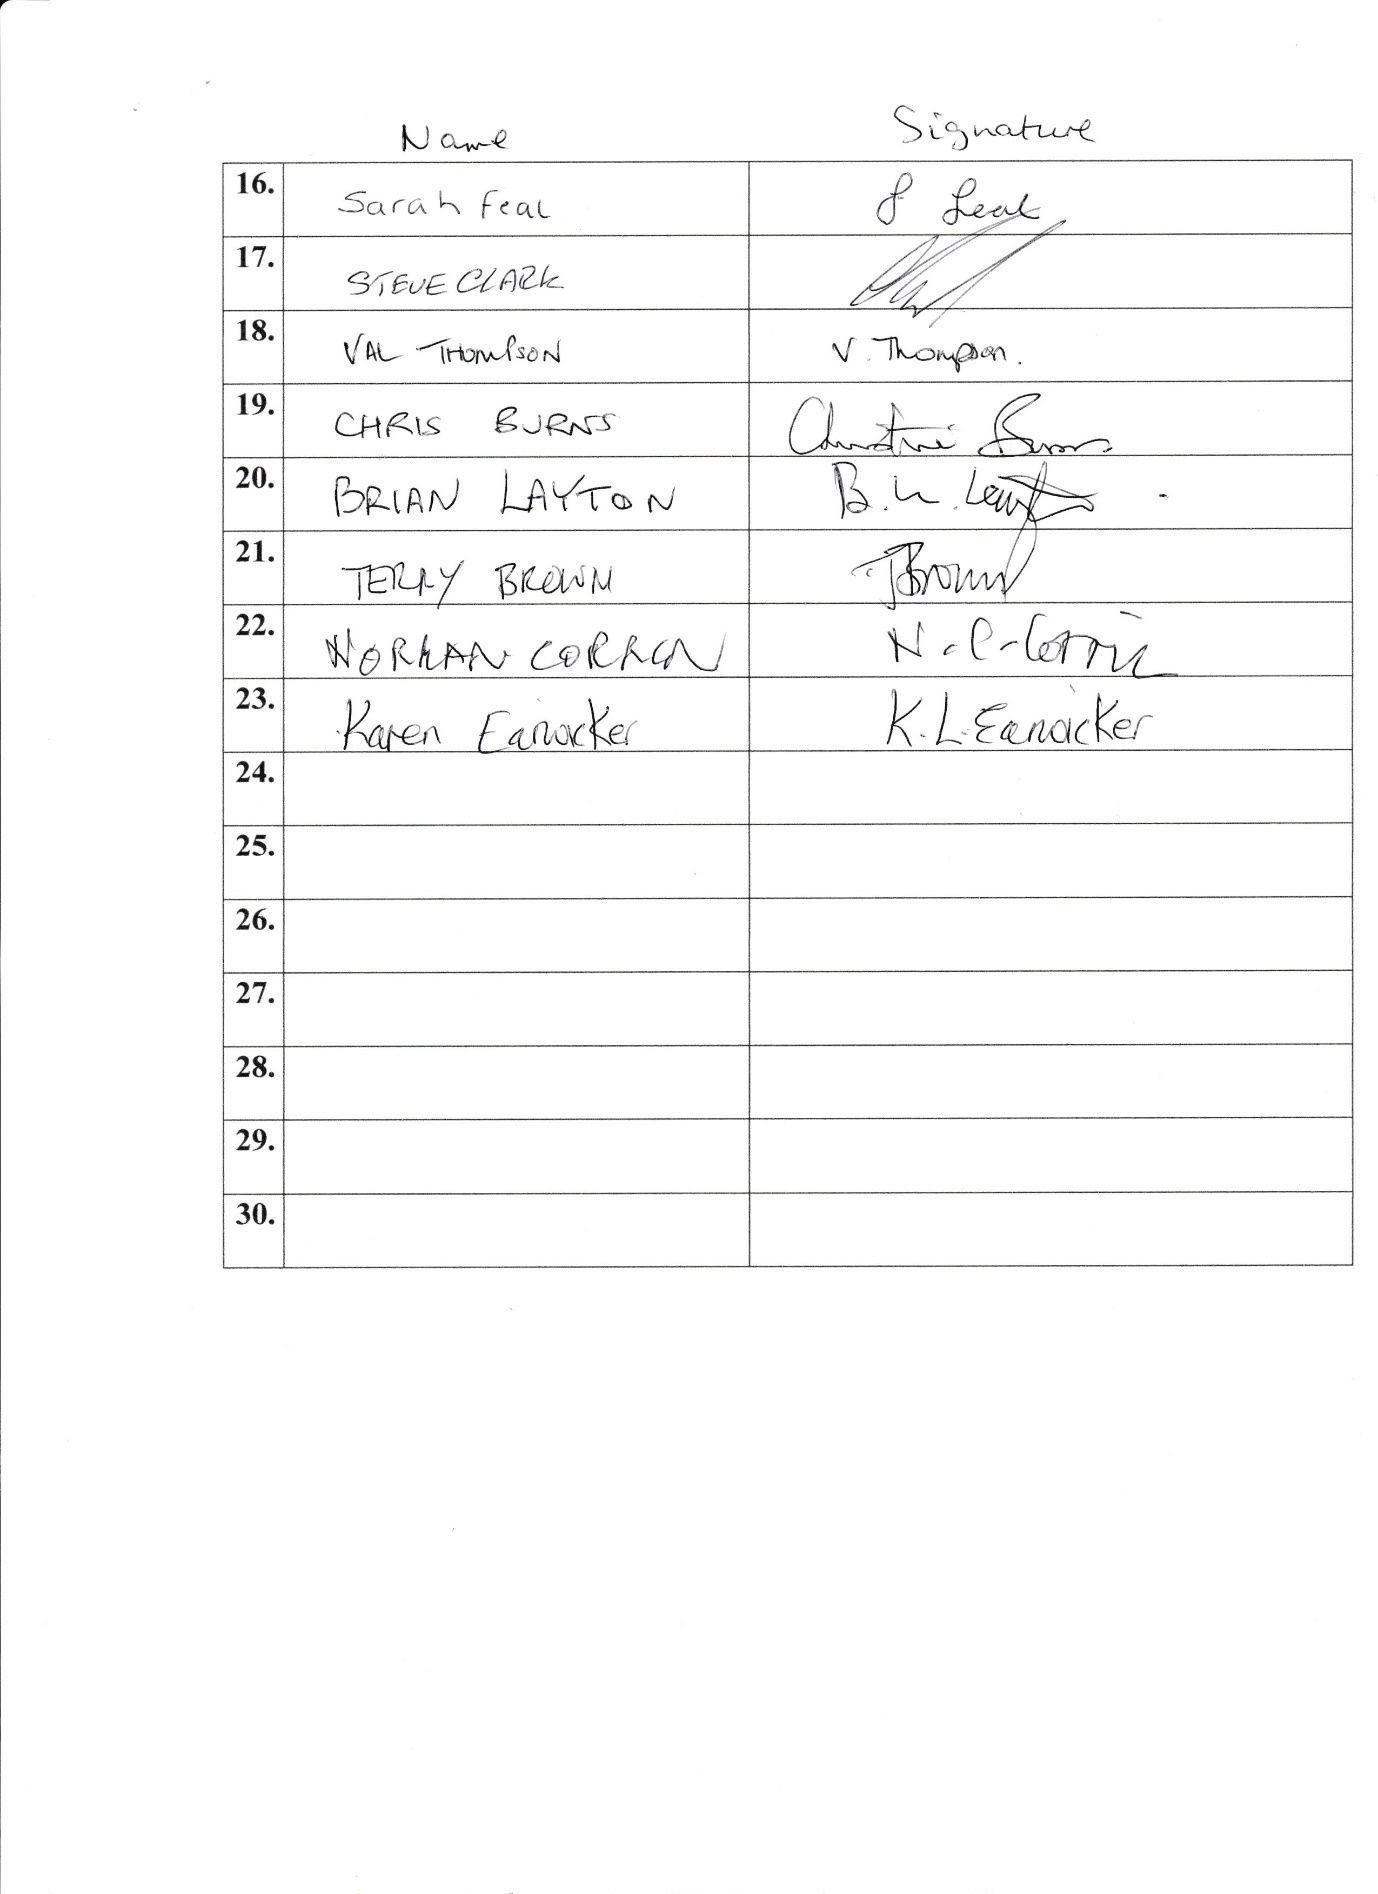 Name Signature
16. Sarah Feal S Feal
17. STEVE CLARK
18. VAL THOMPSON V. Thompson.
19. CHRIS BURNS Christine Burns
20. BRIAN LAYTON B. Layton
21. TERRY BROWN TBrown
22. NORMAN N.
23. Karen Earwicker K.L.Earwicker
24.
25.
26.
27.
28.
29.
30.